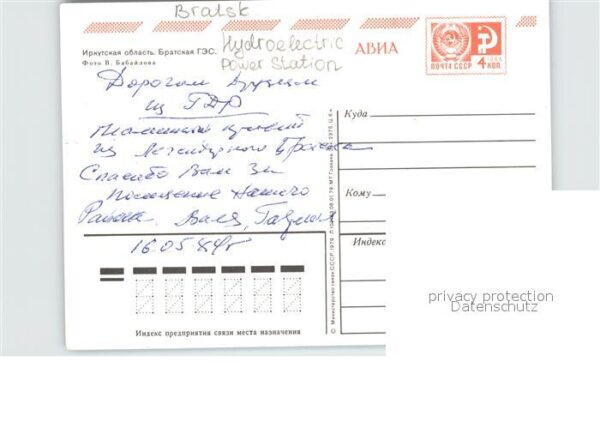 Bratsk
Иркутская область. Братская ГЭС.
Фото В. Бабайлова
Hydroelectric
Power Station
АВИА
ПОЧТА СССР
4 КОП.
Дорогим друзьям
из ГДР
Пламенный привет
из Легендарного Братска
Спасибо Вам за
посещение нашего
Района. Валя,
16.05.84г
Куда
Кому
Индекс
Индекс предприятия связи места назначения
© Министерство связи СССР, 1979
privacy protection
Datenschutz